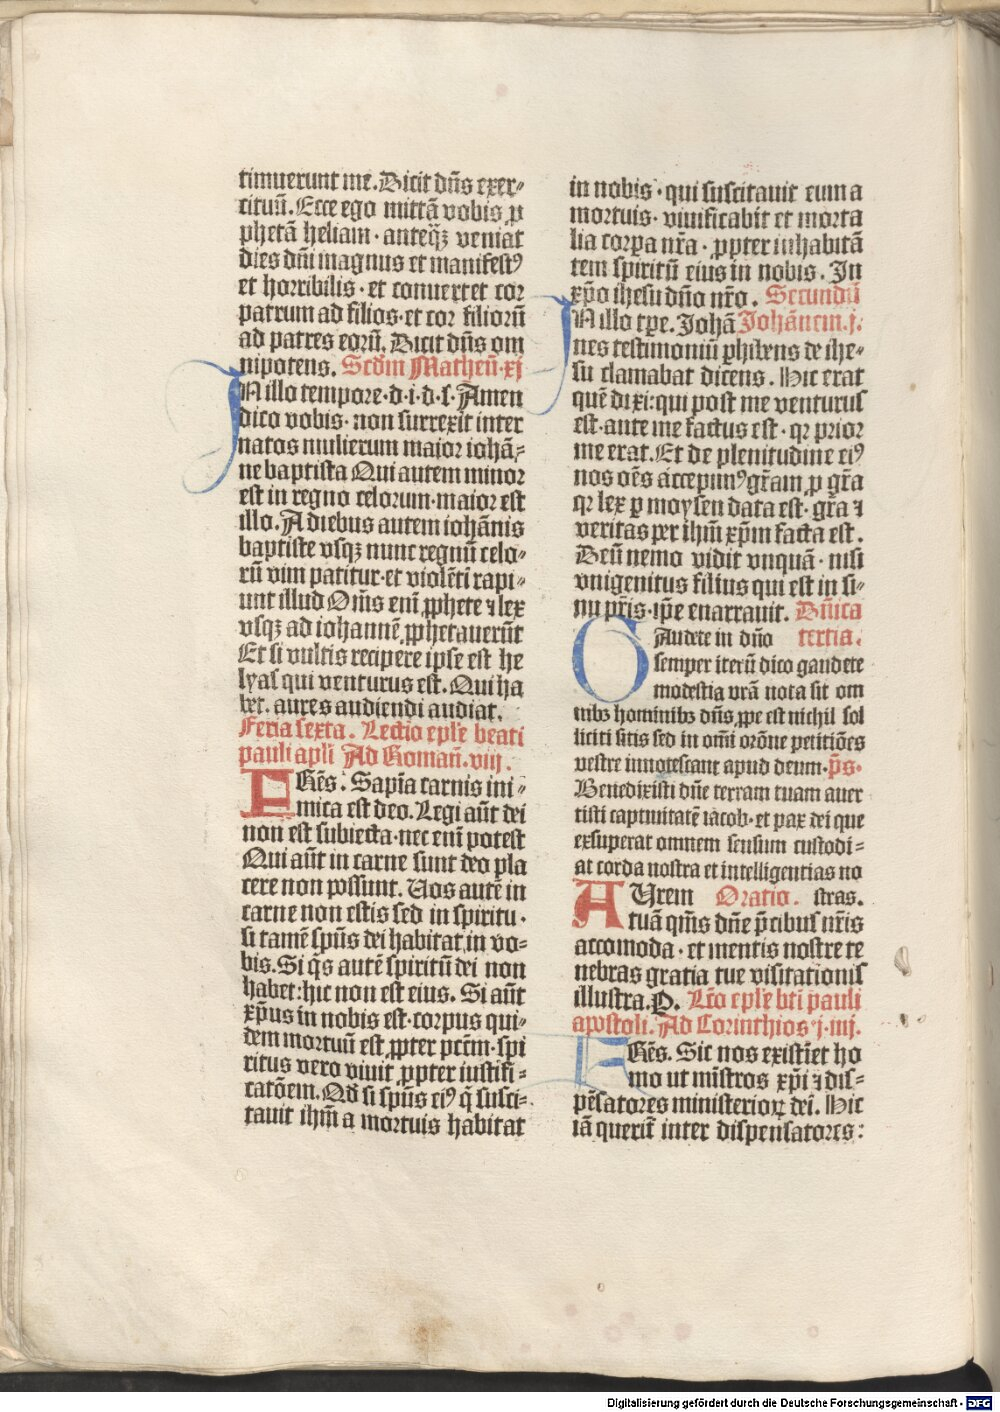 timuerunt me. Dicit dn̄s exer⸗
cituū. Ecce ego mittā vobis ꝓ
phetā heliam · anteq̄ꝫ veniat
dies dn̄i magnus et manifestꝰ
et horribilis · et conuertet cor
patrum ad filios · et cor filiorū
ad patres eorū. Dicit dn̄s om
nipotens. Scdm̄ Matheū · xj
IN illo tempore · d · i · d · s · Amen
dico vobis · non surrexit inter
natos mulierum maior iohā⸗
ne baptista Qui autem minor
est in regno celorum · maior est
illo. A diebus autem iohānis
baptiste vsqꝫ nunc regnū celo⸗
rū vim patitur · et violēti rapi⸗
unt illud Om̄s enī ꝓphete ⁊ lex
vsqꝫ ad iohannē ꝓphetauerūt
Et si vultis recipere ipse est he
lyas qui venturus est. Qui ha
bet. aures audiendi audiat.
Feria sexta. Lectio epl̄e beati
pauli apl̄i Ad Roman̄. viij.
FRēs. Sapīa carnis ini⸗
mica est deo. Legi aūt dei
non est subiecta · nec enī potest
Qui aūt in carne sunt deo pla
cere non possunt. Uos autē in
carne non estis sed in spiritu ·
si tamē sp̄us dei habitat in vo⸗
bis. Si q̄s autē spiritū dei non
habet: hic non est eius. Si aūt
xp̄us in nobis est · corpus qui⸗
dem mortuū est ꝓpter pctm̄ · spi
ritus vero viuit ꝓpter iustifi⸗
catōem. Qd̄ si sp̄us eiꝰ q̄ susci⸗
tauit ihm̄ a mortuis habitat
in nobis · qui suscitauit eum a
mortuis · viuificabit et morta
lia corpa nr̄a · ꝓpter inhabitā
tem spiritū eius in nobis. In
xp̄o ihesu dn̄o nr̄o. Secundū
IN illo tp̄e. Johā Johānem. j.
nes testimoniū ꝓhibens de ihe⸗
su clamabat dicens. Hic erat
quē dixi: qui post me venturus
est · ante me factus est · qꝛ prior
me erat. Et de plenitudine eiꝰ
nos oēs accepimꝰ gr̄am ꝓ gr̄a
qꝛ lex ꝑ moysen data est · gr̄a ⁊
veritas per ihm̄ xp̄m facta est.
Deū nemo vidit vnquā · nisi
vnigenitus filius qui est in si⸗
nu pr̄is · ip̄e enarrauit. Dn̄ica
GAudete in dn̄o tertia.
semper iterū dico gaudete
modestia vrā nota sit om
nibꝫ hominibꝫ dn̄s ꝓpe est nichil sol
liciti sitis sed in om̄i orōne petitiōes
vestre innotescant apud deum · p̄s·
Benedixisti dn̄e terram tuam auer
tisti captiuitatē iacob · et pax dei que
exsuperat omnem sensum custodi⸗
at corda nostra et intelligentias no
AUrem Oratio. stras.
tuā qm̄s dn̄e p̄cibus nr̄is
accomoda · et mentis nostre te
nebras gratia tue visitationis
illustra. Q. Lc̄o epl̄e bt̄i pauli
apostoli. Ad Corinthios · j · iiij.
FRēs. Sic nos existīet ho
mo ut mīstros xp̄i ⁊ dis⸗
pēsatores ministerioꝝ dei. Hic
iā querit̄ inter dispensatores:
Digitalisierung gefördert durch die Deutsche Forschungsgemeinschaft - DFG